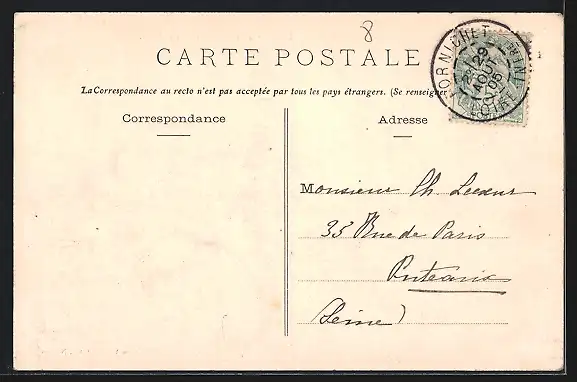 8
CARTE POSTALE
La Correspondance au recto n'est pas acceptée par tous les pays étrangers. (Se renseigner
PORNICHET
29
AOUT
05
LOIRE INF
Correspondance
Adresse
Monsieur Ch. Lecœur
33 Rue de Paris
Puteaux
Seine)